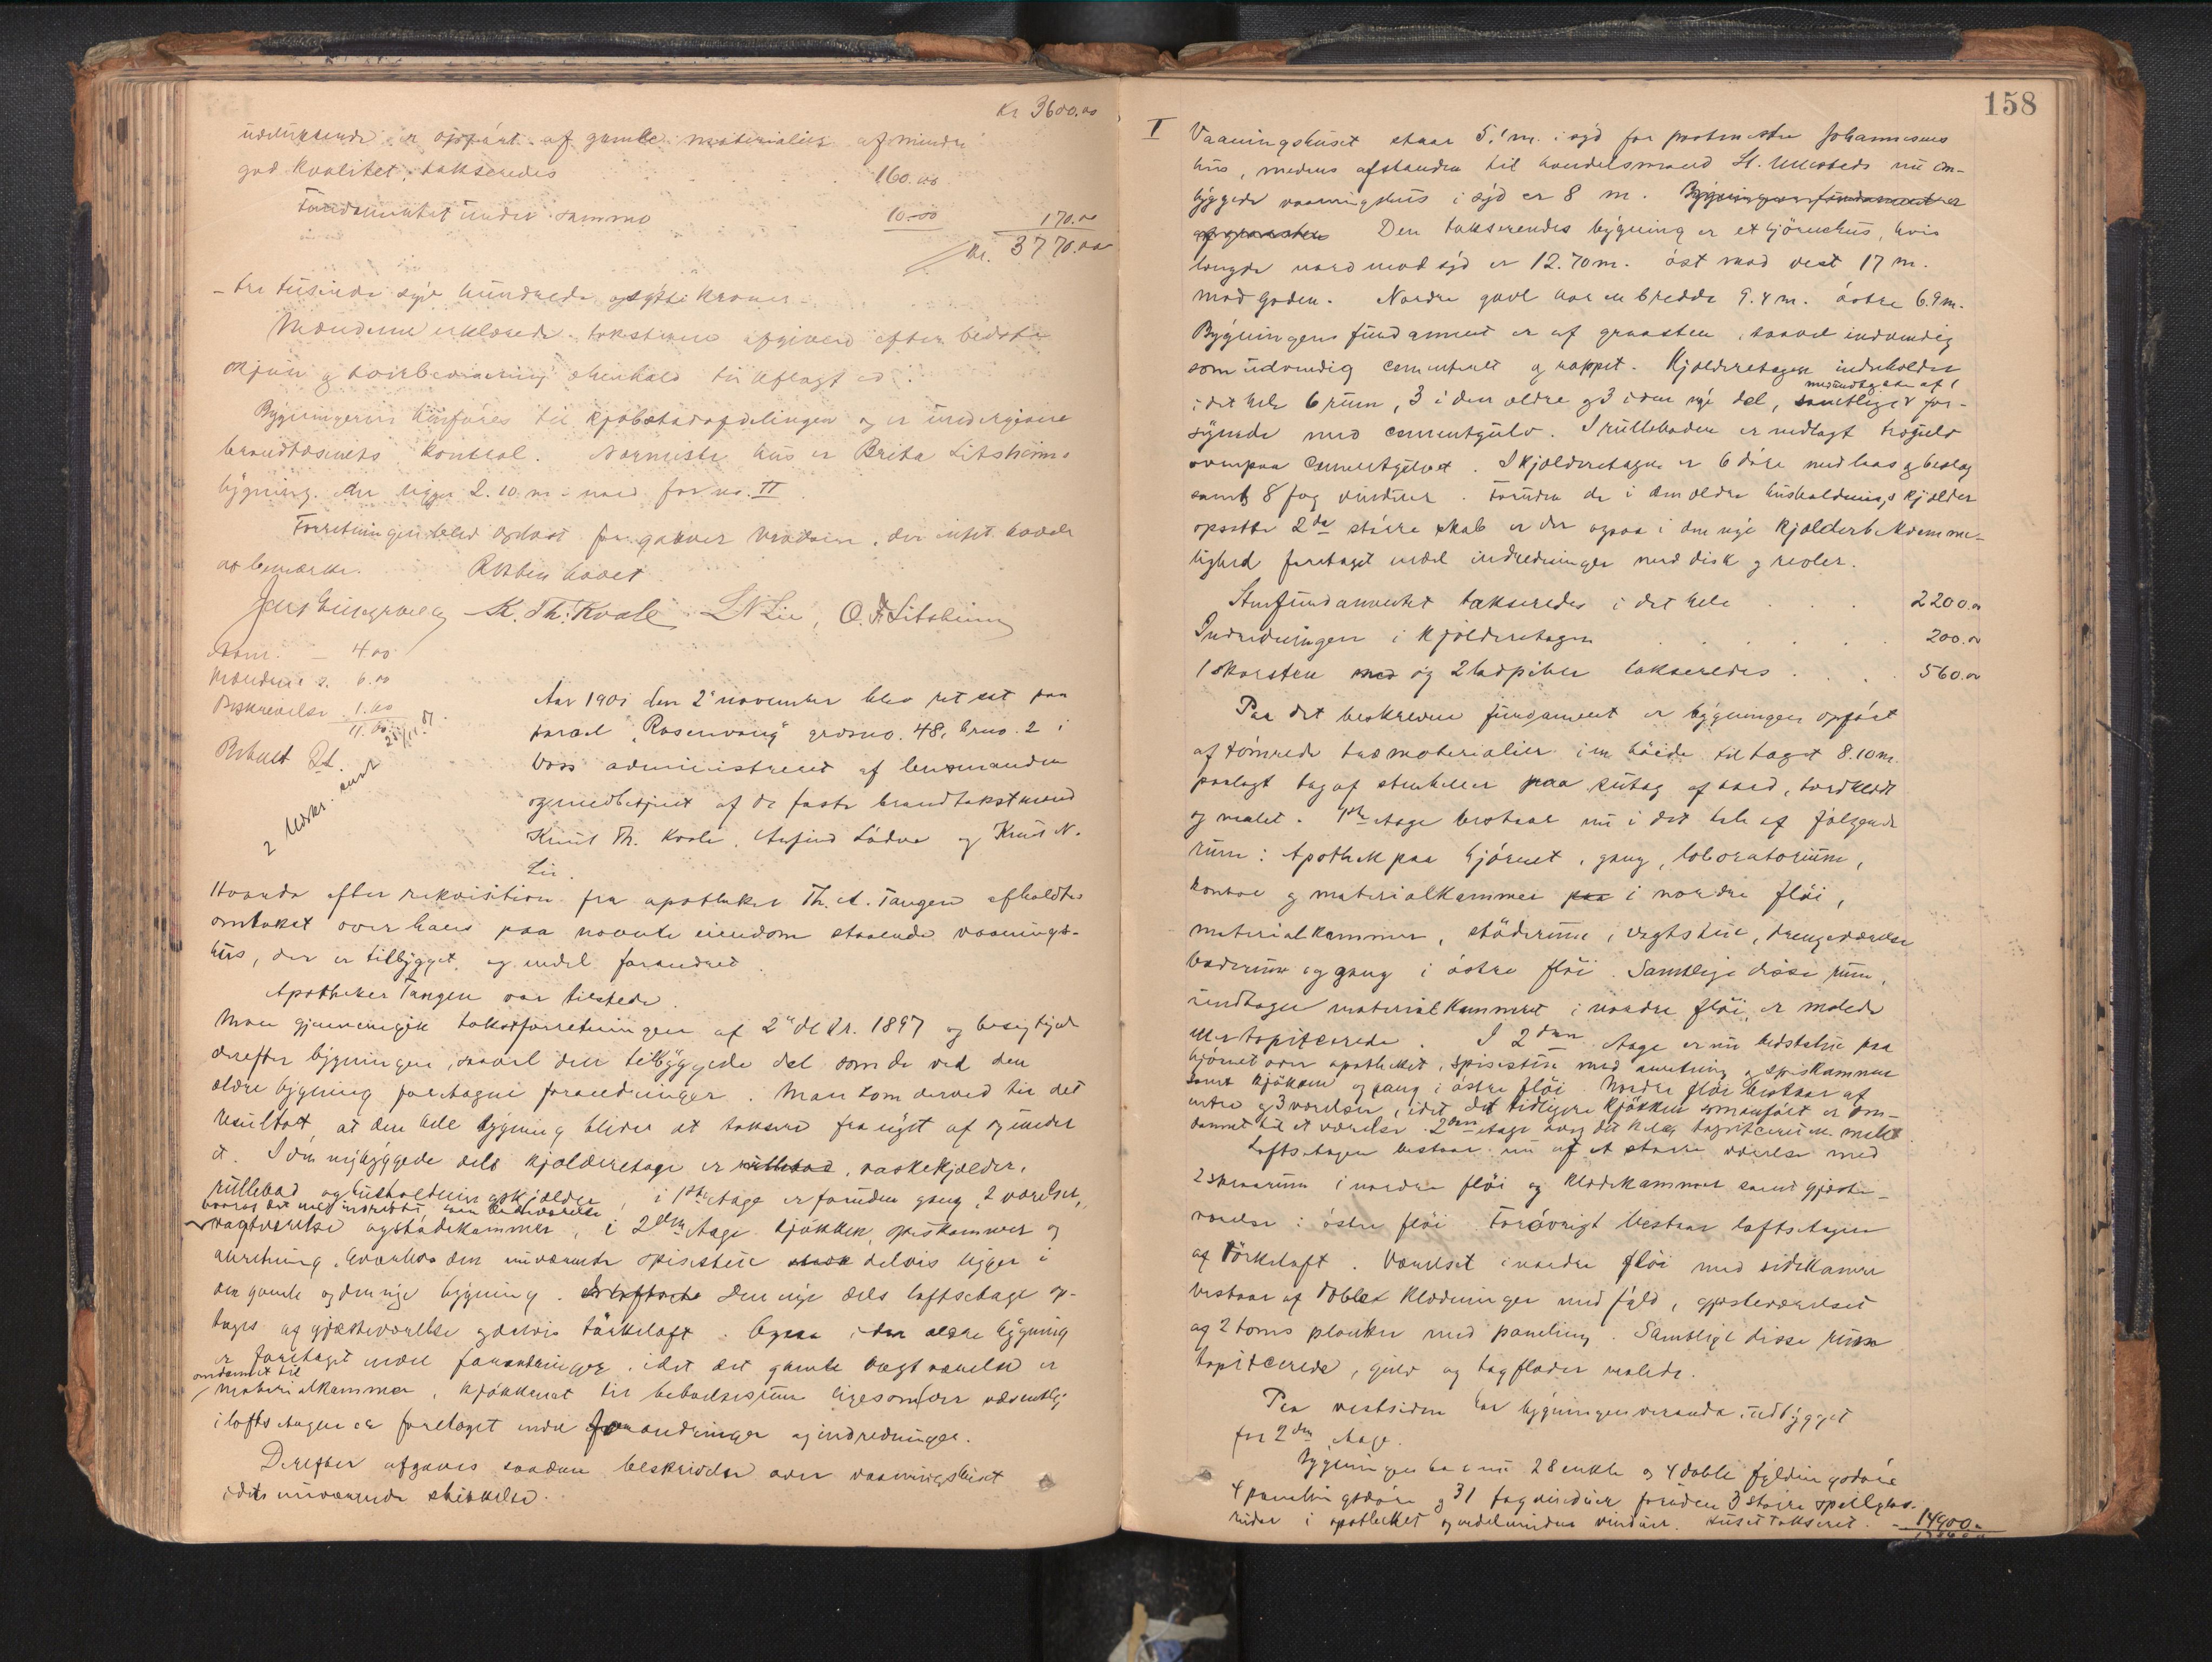 Kr 3600.00
er opført af gamle materialier af mindre
god kvalitet, takseredes 160.00
Fundamentet under samme 10.00 170.00
Kr. 3770.00
- tre tusinde syv hundrede og sytti kroner -
Mændene erklærede taksterne afgivne efter bedste
skjøn og overbevisning i henhold til aflagt ed.
Bygningerne henføres til kjøbstadafdelingen og er undergivne
brandvæsenets kontrol. Nærmeste hus er Brita Litsheims
bygning, der ligger 2.10 m i nord for no. II
Forretningen blev oplæst for gaardbruger, der intet havde
at bemærke. Retten hævet
K. Th. Kvale L N Lie, O. T. Litsheim
4 00
Mændene 6.00
Beskrivelse 1.00
11.00
Betalt
2 Udskr. sendt
Aar 1901 den 2 november blev ret sat paa
parcel "Rosenvang" grdsno. 48, brno. 2 i
Voss administreret af lensmanden
og medbetjent af de faste brandtakstmænd
Knut Th. Kvale, Anfind Lødve og Knut N.
Lie.
Hvorda efter rekvisition fra apotheker Th. A. Tangen afholdtes
omtakst over hans paa nævnte eiendom staaende vaanings-
hus, der er tilbygget og endel forandret.
Apotheker Tangen var tilstede.
Man gjennemgik takstforretningen af 2 dcbr. 1897 og besigtigede
derefter bygningen, saavel den tilbyggede del som de ved den
ældre bygning foretagne forandringer. Man kom derved til det
resultat, at den hele bygning bliver at taksere fra nyt af og under
et. I den nybyggede dels kjælderetage er rullebod, vaskekjælder,
rullebod og husholdningskjælder, i 1ste etage er foruden gang, 2 værelser,
vagtværelse og stødekammer, i 2den etage kjøkken, spiskammer og
anretning, hvorhos den nuværende spisestue delvis ligger i
den gamle og den nye bygning. Den nye dels loftsetage op-
tages af gjæsteværelse og delvis tørkeloft. Ogsaa i den ældre bygning
er foretaget endel forandringer, idet det gamle vagtværelse er
omdannet til
materialkammer, kjøkkenet til beboelsesrum ligesom der væsentlig
i loftsetagen er foretaget endel forandringer og indredninger.
Derefter afgaves saadan beskrivelse over vaaningshuset
i dets nuværende skikkelse.
158
I Vaaningshuset staar 5.1 m. i syd for postmester Johannesens
hus, medens afstanden til handelsmand St. Ullesteds nu om-
byggede vaaningshus i syd er 8 m. Bygningens fundament er
af graasten Den takserendes bygning er et hjørnehus, hvis
længde nord mod syd er 12.70 m. øst mod vest 17 m.
mod gaden. Nordre gavl har en bredde 9.4 m. østre 6.9 m.
Bygningens fundament er af graasten, saavel indvendig
som udvendig cementeret og rappet. Kjælderetagen indeholder
med undtagelse af 1
i det hele 6 rum, 3 i den ældre og 3 i den nye del, samtlige for-
synede med cementgulv. I rulleboden er nedlagt trægulv
ovenpaa cementgulvet. I kjælderetagen er 6 døre med laas og beslag
samt 8 fag vinduer. Foruden de i den ældre husholdningskjælder
opsatte 2de større skab er der ogsaa i den nye kjælderbekvemme-
lighed foretaget endel indredninger med disk og reoler.
Stenfundamentet takseredes i det hele . . . 2200.00
Indredningen i kjælderetagen . . . . 200.00
1 skorsten med og 2 ladpiber takseredes . . . 560.00
Paa det beskrevne fundament er bygningen opført
af tømrede træmaterialier i en høide til taget 8.10 m.
paalagt tag af stenheller paa sutag af bord, bordklædt
og malet. 1ste etage bestaar nu i det hele af følgende
rum: Apothek paa hjørnet, gang, laboratorium,
kontor og materialkammer paa i nordre fløi,
materialkammer, støderum, vagtstue, drengeværelse
baderum og gang i østre fløi. Samtlige disse rum,
undtagen materialkammeret i nordre fløi, er malede
eller tapitcerede. I 2den etage er nu bedstestue paa
hjørnet over apotheket, spisestue med anretning og spiskammer
samt kjøkken og gang i østre fløi. Nordre fløi bestaar af
entre og 3 værelser, idet det tidligere kjøkken som anført er om-
dannet til et værelse. 2den etage over det hele tapitceret og malet
Loftsetagen bestaar nu af et større værelse med
2 skraarum i nordre fløi og klædekammer samt gjæste-
værelse i østre fløi. Forøvrigt bestaar loftsetagen
af tørkeloft. Værelset i nordre fløi med sidekamre
bestaar af doble klædninger med fyld, gjæsteværelset
af 2 toms planker med paneling. Samtlige disse rum
tapitcerede, gulv og tagflader malede.
Paa vestsiden har bygningen veranda udbygget
for 2den etage.
Bygningen har nu 28 enkle og 4 doble fyldingsdøre
4 panelingsdøre og 31 fag vinduer foruden 3 større speilglas-
ruder i apotheket og endel mindre vinduer. Huset takseret. - 14900.-